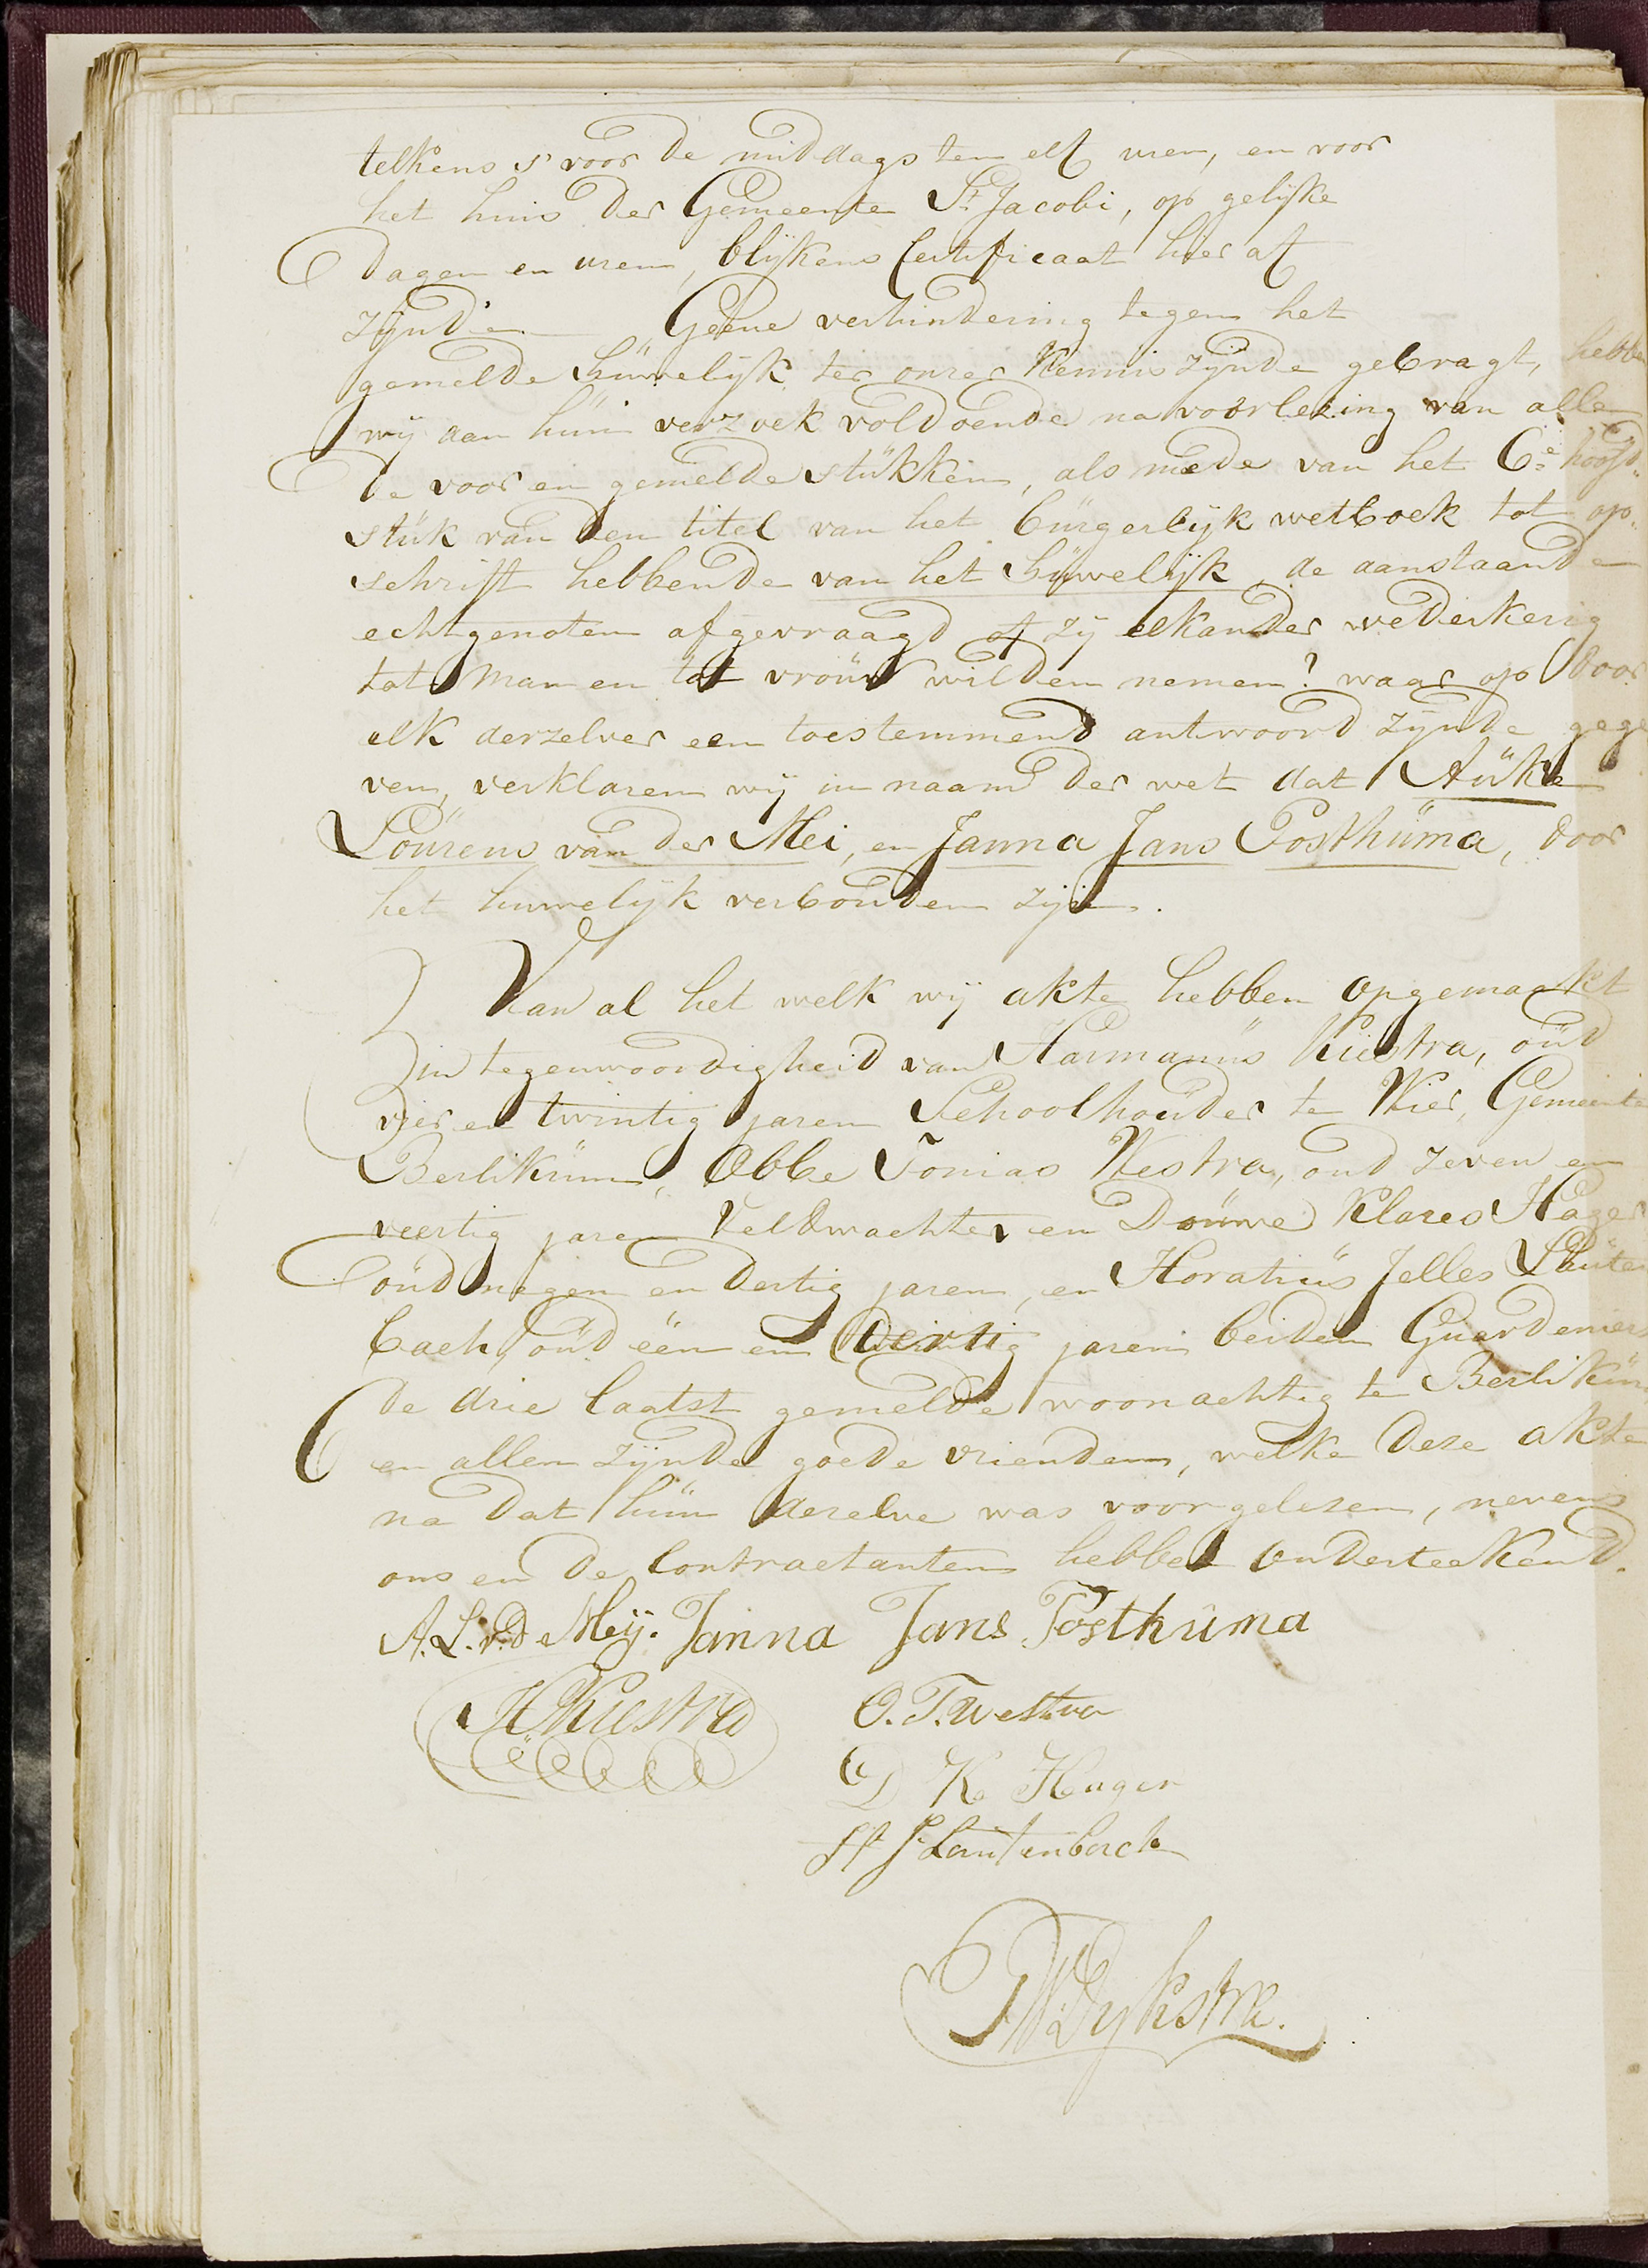 telkens s' voor de middags ten elf uren, en voor
het huis der Gemeente St. Jacobi, op gelijke
dagen en uren, blijkens Certificaat hier af
zijnde. Geene verhindering tegen het
gemelde Huwelijk ter onzer kennis zijnde gebragt, hebbe
wij aan hun verzoek voldoende na voorlezing van alle
de vooren gemelde stukken, als mede van het 6e hoofd
stuk van den titel van het burgerlijk wetboek tot op
schrift hebbende van het Huwelijk, de aanstaande
echtgenoten afgevraagd of zij elkander wederkerig
tot man en tot vrouw wilden nemen? waar op door
elk derzelver een toestemmend antwoord zijnde gege
ven, verklaren wij in naam der wet dat Auke
Lourens van der Mei, en Janna Jans Posthuma, door
het huwelijk verbonden zijn.
Van al het welk wij akte hebben opgemaakt
in tegenwoordigheid van Harmanus Kiestra, oud
vier en twintig jaren Schoolhouder te Wier, Gemeente
Berlikum, Obbe Tonias Westra, oud zeven en
veertig jaren Veldwachter en Douwe Klases Hager
oud negen en dertig jaren, en Horatius Jelles Lauten
bach, oud één en dertig jaren beiden Guardenier
de drie laatst gemelde woonachtig te Berlikum
en allen zijnde goede vrienden, welke deze akte
na dat hun dezelve was voorgelezen, nevens
ons en de Contractanten hebben onderteekend.
A. L. v. D. Meij. Janna Jans Posthuma
H Kiestra O. T. Westra
D K Hager
H J Lautenbach
Dykstra.